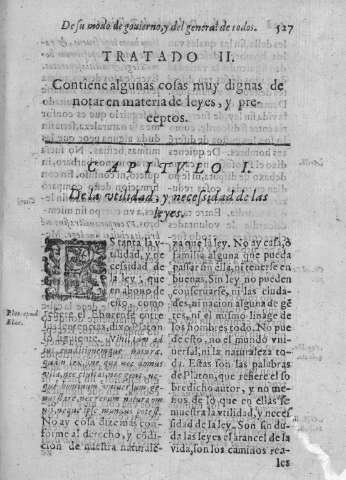 De su modo de gouierno, y del general de todos. 527
TRATADO II.
Contiene algunas cosas muy dignas de
notar en materia de leyes, y pre-
ceptos.
CAPITVLO I.
De la vtilidad, y necessidad de las
leyes.
ES tanta la v-
tilidad, y ne
cessidad de
la ley; que
en abono de
esto, como
refiere el Eborense entre
las sentencias, dixo Platon
lo siguiente. Nihil tam ad
ius conditionemque natura,
quàm lex, sine qua nec domus
vlla, nec ciuitas, nec gens, ne-
que hominum vniuersum ge-
nus stare, nec rerum natura om
nis, neque ipse mundus potest.
No ay cosa dize mas con-
forme al derecho, y cōdi-
cion de nuestra naturale-
za que la ley. No ay casa, ò
familia alguna que pueda
passar sin ella, ni tenerse en
buenas. Sin ley no pueden
conseruarse, ni las ciuda-
des, ni nacion alguna de gē
tes, ni el mismo linage de
los hombres todo. No pue
de esto, no el mundo vni-
uersal, ni la naturaleza to-
da. Estas son las palabras
de Platon, que refiere el so
bredicho autor, y no me-
nos de lo que en ellas se
muestra la vtilidad, y neces
sidad de la ley. Son sin du-
da las leyes el arancel de la
vida, son los caminos rea-
les
Plat. apud
Ebor.